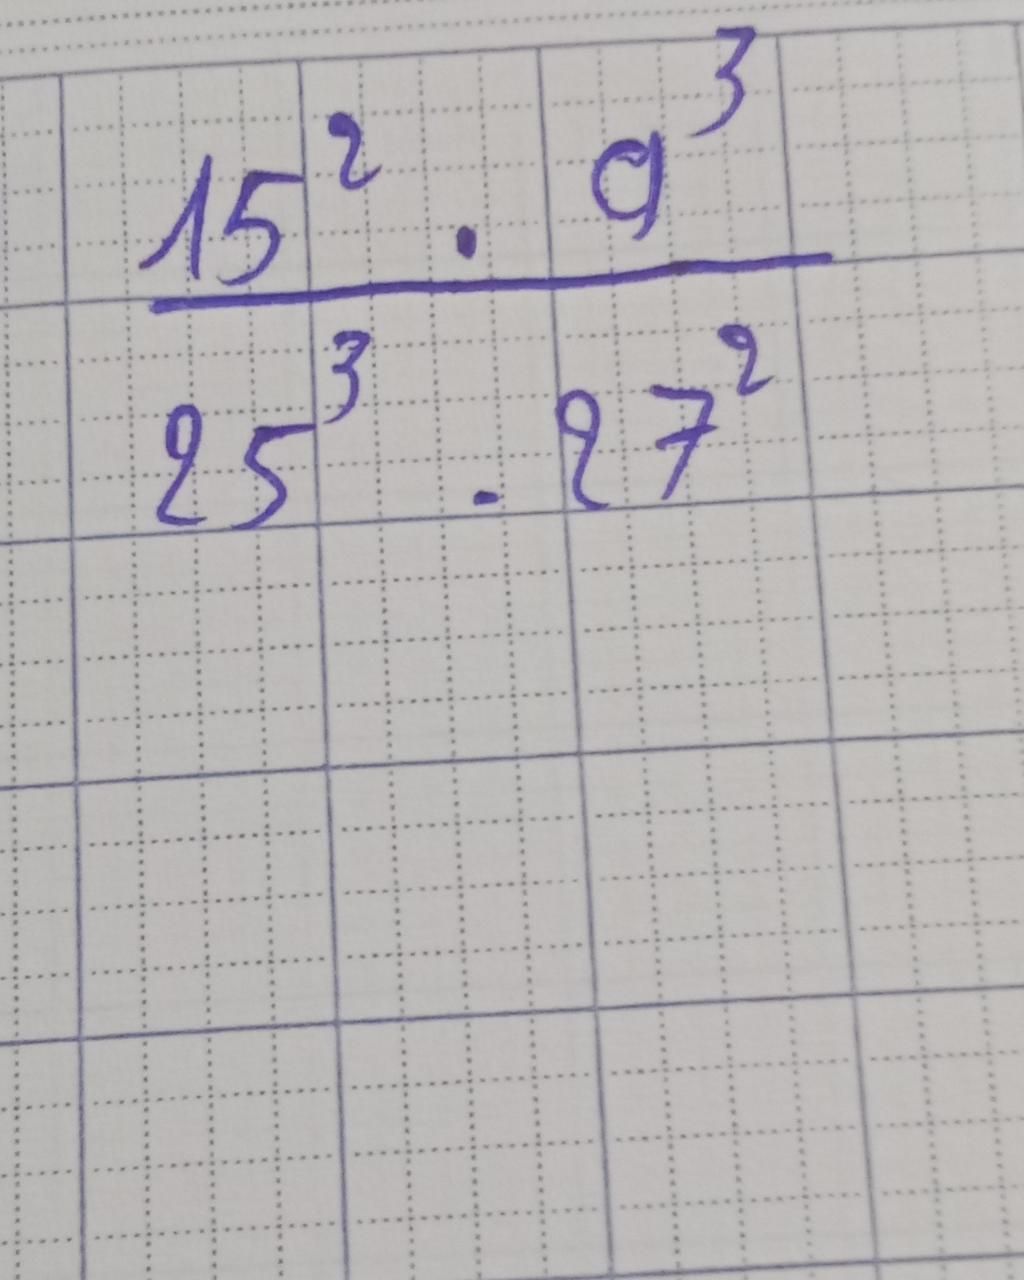 15² . 9³
25³ . 27²